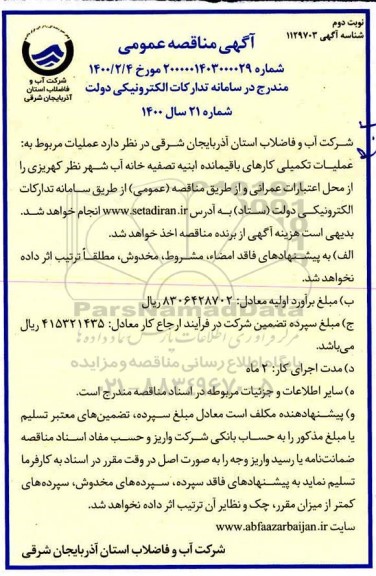 نوبت دوم
شناسه آگهی ۱۱۲۹۷۰۳
شرکت آب و فاضلاب استان
آذربایجان شرقی
آگهی مناقصه عمومی
شماره ۲۰۰۰۰۰۱۴۰۳۰۰۰۰۲۹ مورخ ۱۴۰۰/۲/۴
مندرج در سامانه تدارکات الکترونیکی دولت
شماره ۲۱ سال ۱۴۰۰
شرکت آب و فاضلاب استان آذربایجان شرقی در نظر دارد عملیات مربوط به:
عملیات تکمیلی کارهای باقیمانده ابنیه تصفیه خانه آب شهر نظر کهریزی را
از محل اعتبارات عمرانی و از طریق مناقصه (عمومی) از طریق سامانه تدارکات
الکترونیکی دولت (ستاد) به آدرس www.setadiran.ir انجام خواهد شد.
بدیهی است هزینه آگهی از برنده مناقصه اخذ خواهد شد.
الف) به پیشنهادهای فاقد امضاء، مشروط، مخدوش، مطلقاً ترتیب اثر داده
نخواهد شد.
ب) مبلغ برآورد اولیه معادل: ۸۳۰۶۴۲۸۷۰۲ ریال
ج) مبلغ سپرده تضمین شرکت در فرآیند ارجاع کار معادل: ۴۱۵۳۲۱۴۳۵ ریال
می‌باشد.
د) مدت اجرای کار: ۳ ماه
ه) سایر اطلاعات و جزئیات مربوطه در اسناد مناقصه مندرج است.
و) پیشنهاددهنده مکلف است معادل مبلغ سپرده، تضمین‌های معتبر تسلیم
یا مبلغ مذکور را به حساب بانکی شرکت واریز و حسب مفاد اسناد مناقصه
ضمانت‌نامه یا رسید واریز وجه را به صورت اصل در وقت مقرر در اسناد به کارفرما
تسلیم نماید به پیشنهادهای فاقد سپرده، سپرده‌های مخدوش، سپرده‌های
کمتر از میزان مقرر، چک و نظایر آن ترتیب اثر داده نخواهد شد.
سایت www.abfaazarbaijan.ir
شرکت آب و فاضلاب استان آذربایجان شرقی
ParsNamadData
پایگاه اطلاع رسانی مناقصه و مزایده
۰۲۱-۸۸۳۴۹۶۷۰-۵